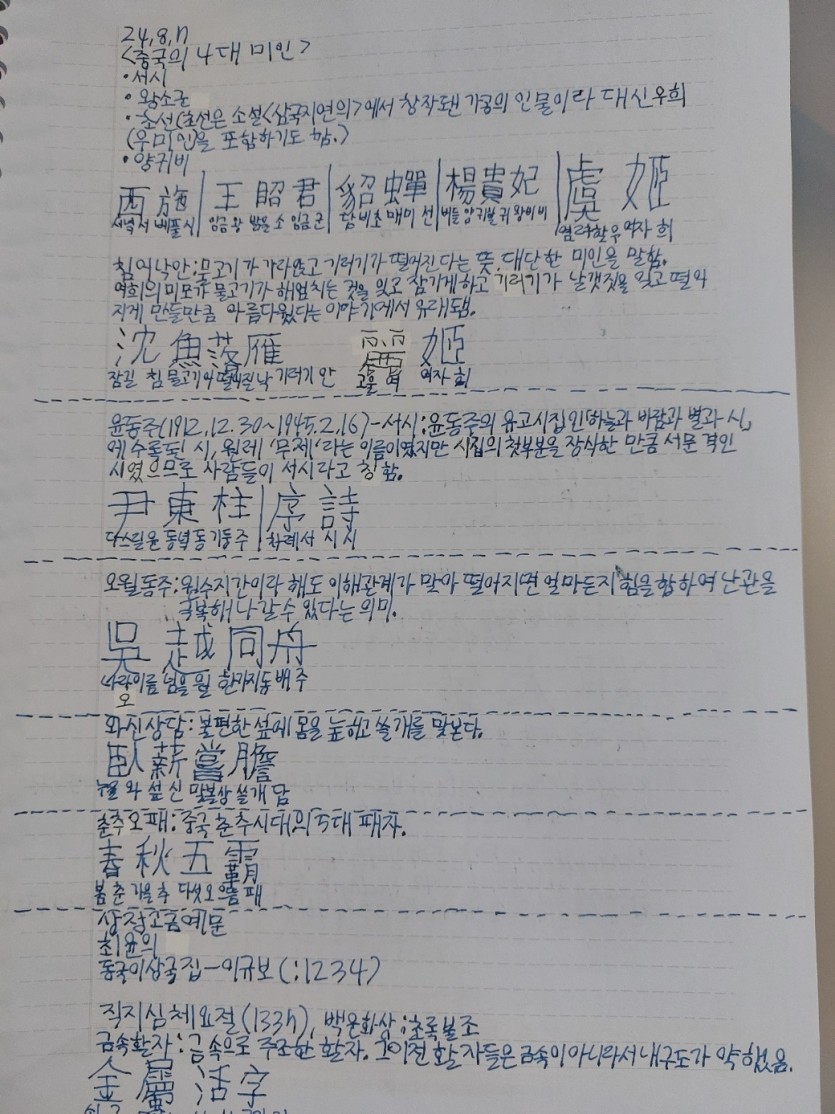 24, 8, 17
<중국의 4대 미인>
• 서시
• 왕소군
• 초선(초선은 소설<삼국지연의>에서 창작됀 가공의 인물이라 대신 우희
(우미인)을 포함하기도 함.)
• 양귀비
西施 | 王昭君 | 貂蟬 | 楊貴妃 | 虞姬
서녘 서 베풀 시 임금 왕 밝을 소 임금 군 담비 초 매미 선 버들 양 귀할 귀 왕비 비 염려할 우 여자 희
침어낙안 : 물고기가 가라앉고 기러기가 떨어진다는 뜻. 대단한 미인을 말함.
여희의 미모가 물고기가 헤엄치는 것을 잊고 잠기게 하고 기러기가 날갯짓을 잊고 떨어
지게 만들만큼 아름다웠다는 이야기에서 유래됨.
沈魚落雁 麗姬
잠길 침 물고기 어 떨어질 낙 기러기 안 고울 여 여자 희
윤동주(1912.12.30~1945.2.16)-서시 : 윤동주의 유고시집인 하늘과 바람과 별과 시,
에 수록된 시, 원래 '무제'라는 이름이였지만 시집의 첫부분을 장식한 만큼 서문 격인
시였으므로 사람들이 서시라고 칭함.
尹東柱 | 序詩
다스릴 윤 동녘 동 기둥 주 차례 서 시 시
오월동주 : 원수지간이라 해도 이해관계가 맞아 떨어지면 얼마든지 힘을 합하여 난관을
극복해 나갈 수 있다는 의미.
吳越同舟
나라이름 넘을 월 한가지 동 배 주
오
와신상담 : 불편한 섶에 몸을 눕히고 쓸개를 맛본다.
臥薪嘗膽
누울 와 섶 신 맛볼 상 쓸개 담
춘추오패 : 중국 춘추시대의 5대 패자.
春秋五霸
봄 춘 가을 추 다섯 오 으뜸 패
상정고금예문
최윤의
동국이상국집-이규보(:1234)
직지심체요절(1377), 백운화상 : 초록불조
금속활자 : 금속으로 주조한 활자. 그 이전 활자들은 금속이 아니라서 내구도가 약했음.
金屬活字